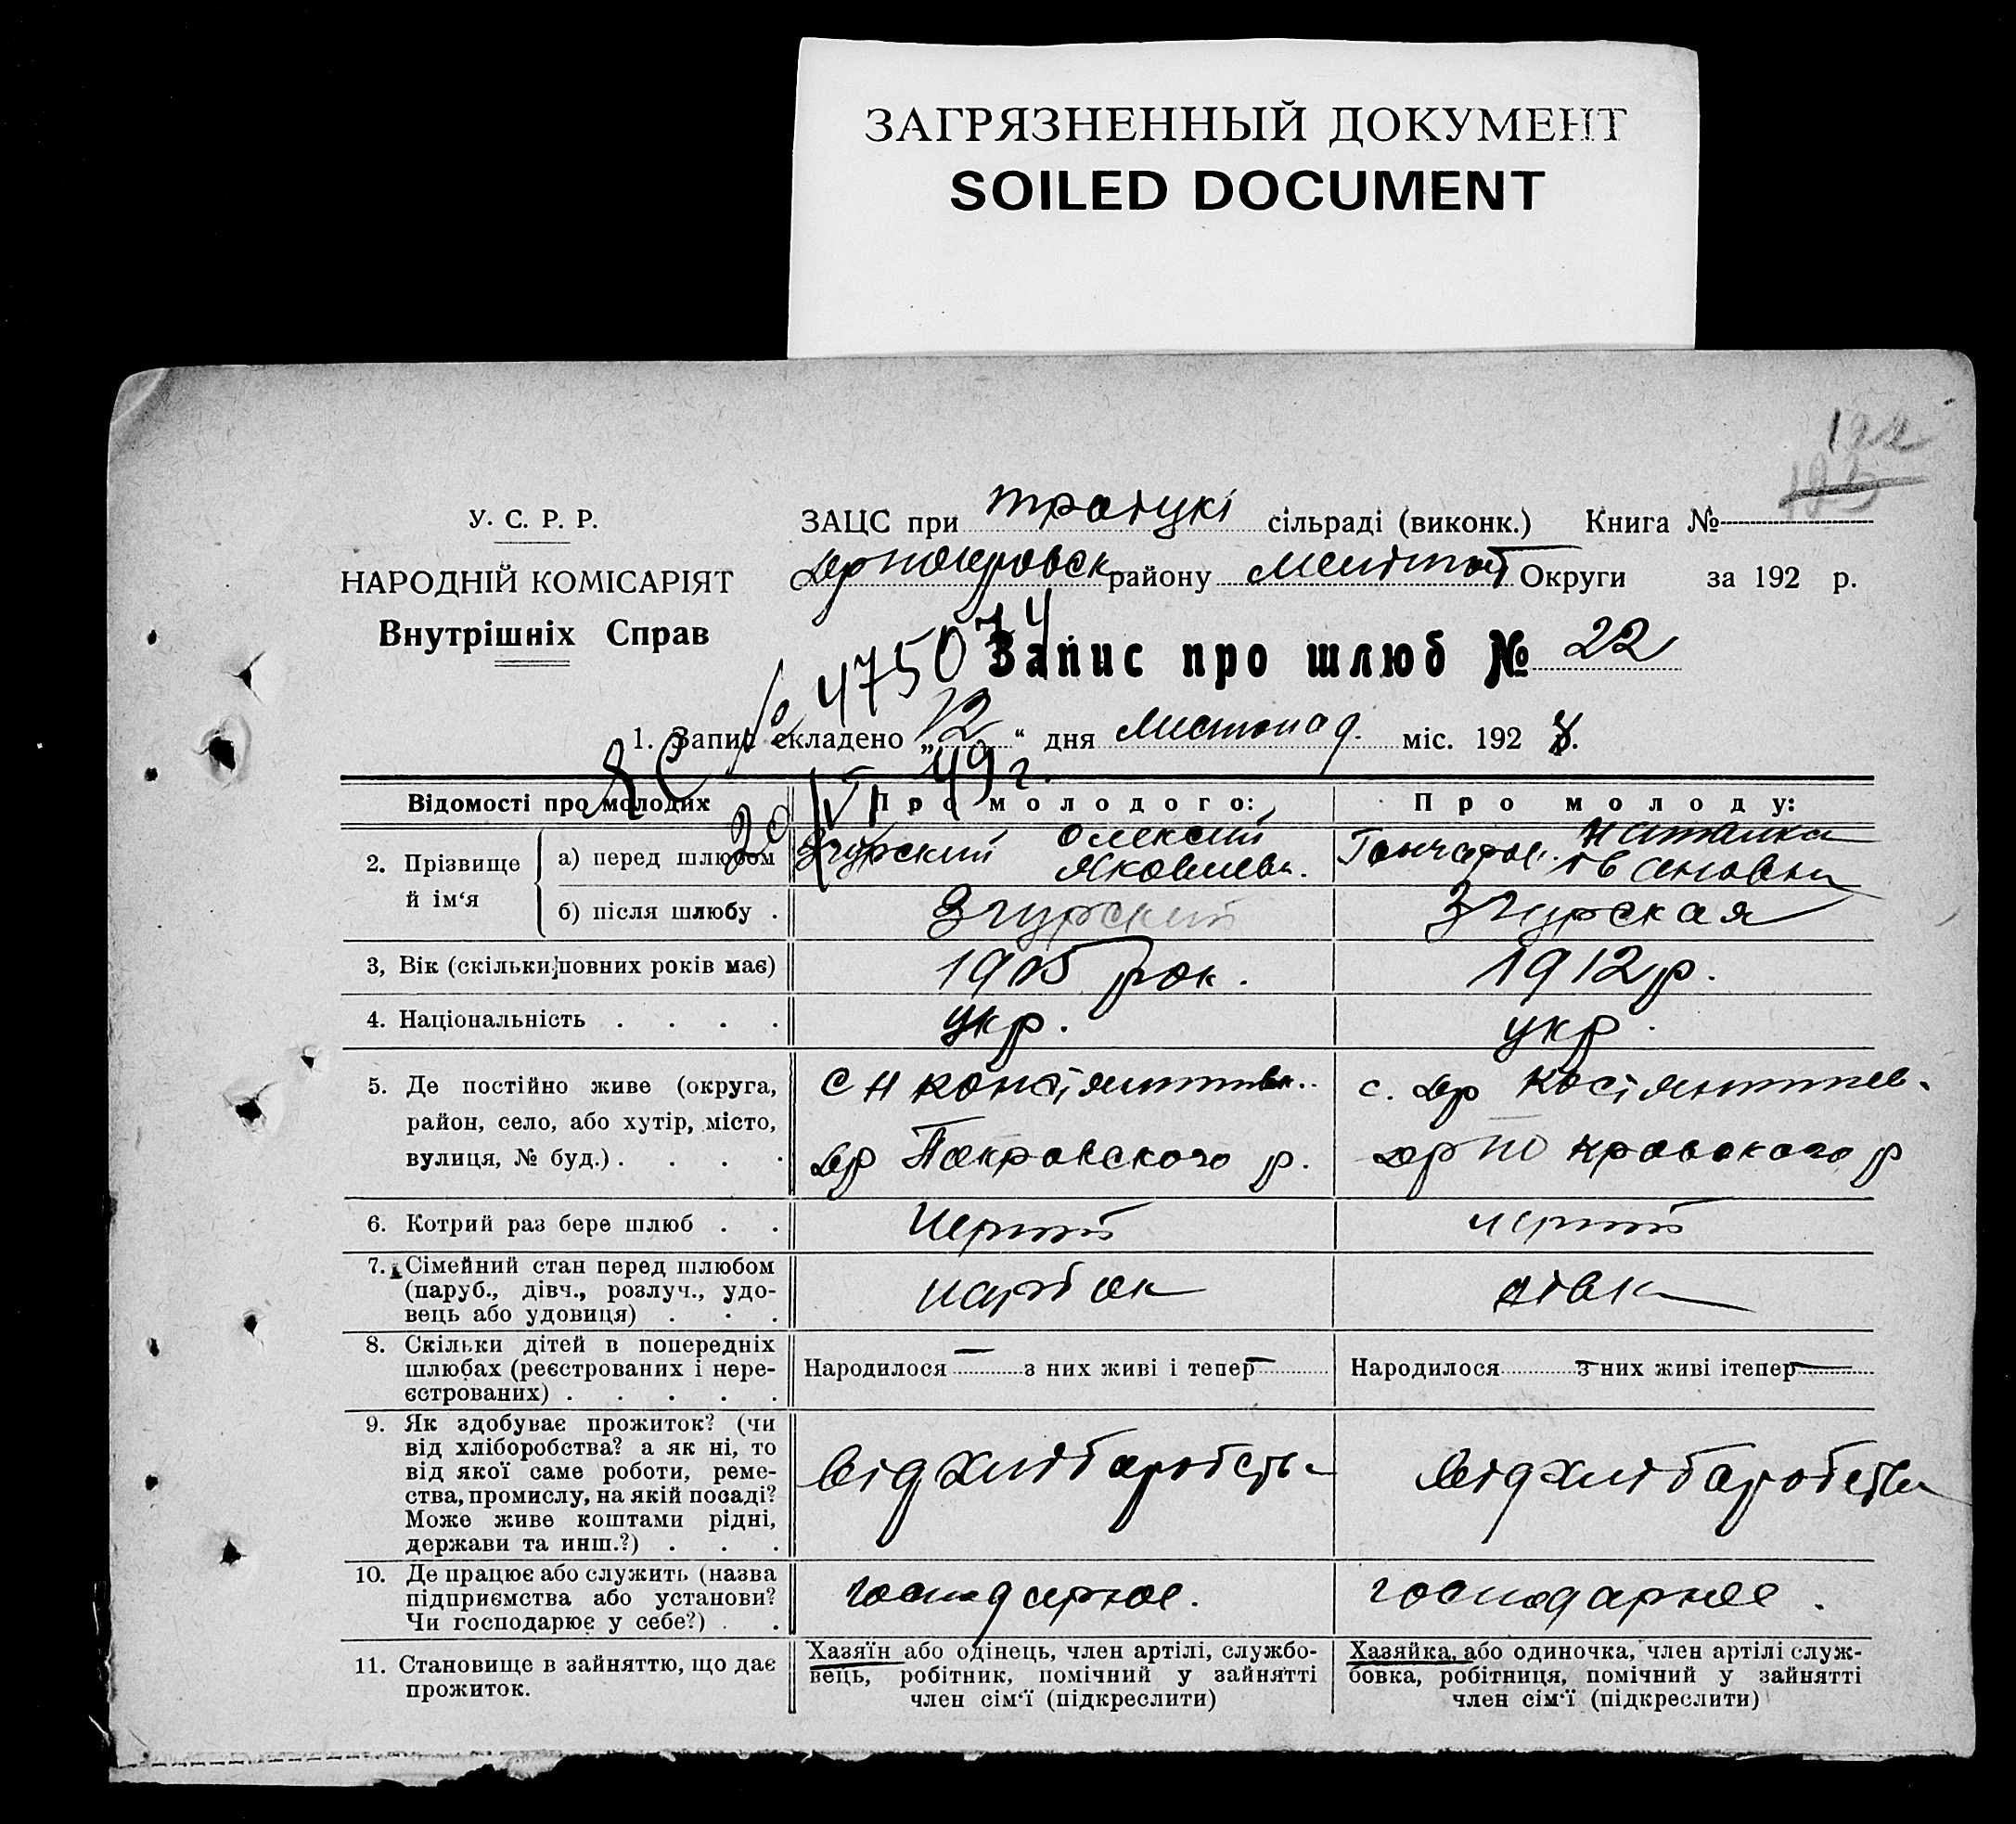 ЗАГРЯЗНЕННЫЙ ДОКУМЕНТ
SOILED DOCUMENT
122
У. С. Р. Р.
НАРОДНІЙ КОМІСАРІЯТ
Внутрішніх Справ
ЗАЦС при сільраді (виконк.) Книга №
району Округи за 192 р.
Запис про шлюб № 22
475074
1. Запис складено „12“ дня листопад. міс. 1928.
49 г.
Відомості про молодих
Про молодого:
Про молоду:
2. Прізвище й ім‘я
а) перед шлюбом
Згурский Олексий Яковлев.
Гончаров. Наталка Ивановна
б) після шлюбу .
Згурский
Згурская
3, Вік (скільки повних років має)
1905 рок.
1912 р.
4. Національність . . . .
укр.
укр.
5. Де постійно живе (округа,
район, село, або хутір, місто,
вулиця, № буд.) . . . .
с Н
Др Покровского р.
с. Др
Др По кровского р
6. Котрий раз бере шлюб . .
перший
перший
7. Сімейний стан перед шлюбом
(паруб., дівч., розлуч., удо-
вець або удовиця) . . .
парубок
дівка
8. Скільки дітей в попередніх
шлюбах (реєстрованих і нере-
єстрованих) . . . . .
Народилося — з них живі і тепер —
Народилося — з них живі ітепер —
9. Як здобуває прожиток? (чи
від хліборобства? а як ні, то
від якої саме роботи, реме-
ства, промислу, на якій посаді?
Може живе коштами рідні,
держави та инш.?) . . .
від хліборобства
від хліборобства
10. Де працює або служить (назва
підприємства або установи?
Чи господарює у себе?) . .
господарює.
господарює.
11. Становище в зайняттю, що дає
прожиток.
Хазяїн або одінець, член артілі, службо-
вець, робітник, помічний у зайнятті
член сім‘ї (підкреслити)
Хазяйка, або одиночка, член артілі служ-
бовка, робітниця, помічний у зайнятті
член сім‘ї (підкреслити)